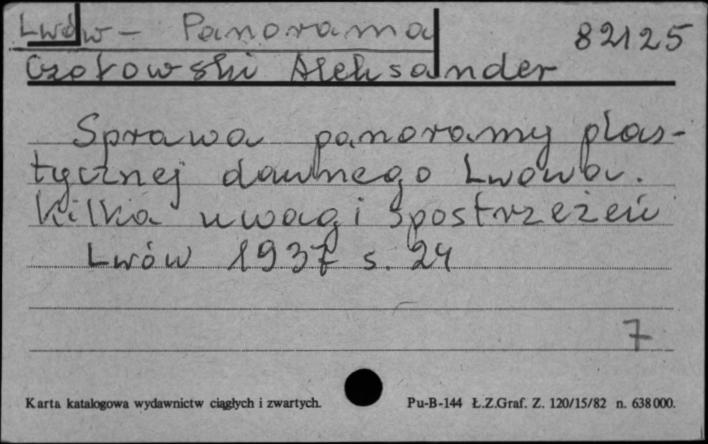 Lwów - Panorama 82125
Czołowski Aleksander
Sprawa panoramy plas-
tycznej dawnego Lwowa.
Kilka uwag i spostrzeżeń
Lwów 1937 s. 24
7
Karta katalogowa wydawnictw ciągłych i zwartych. Pu-B-144 Ł.Z.Graf. Z. 120/15/82 n. 638000.